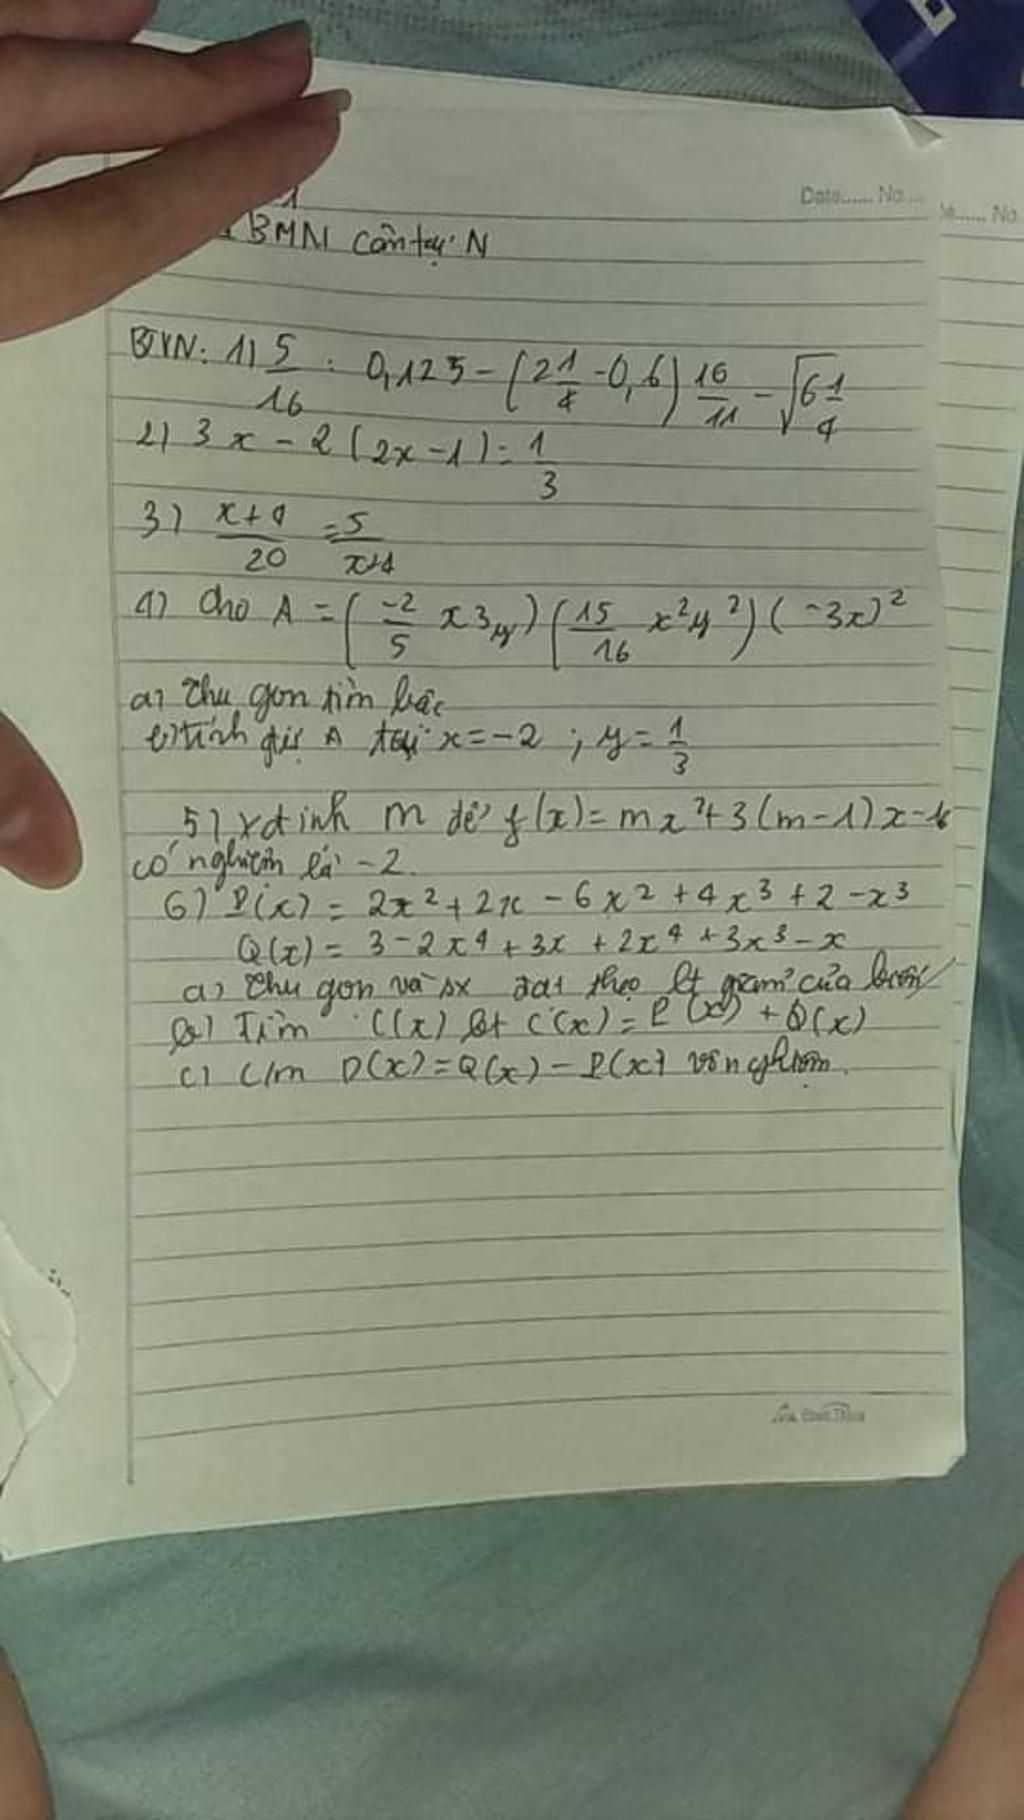 1
Date...... No...
e...... No
BMN cân tại N
BTVN: 1) 5/16 : 0,125 - (2 1/4 - 0,6) 16/11 - √(6 1/4)
2) 3x - 2(2x - 1) = 1/3
3) (x+4)/20 = 5/(x+4)
4) Cho A = (-2/5 x3y) (15/16 x²y²) (-3x)²
a) Thu gọn tìm bậc
b) tính gtrị A tại x = -2 ; y = 1/3
5) xđịnh m để f(x) = mx² + 3(m-1)x - 16
có nghiệm là -2.
6) P(x) = 2x² + 2x - 6x² + 4x³ + 2 - x³
Q(x) = 3 - 2x⁴ + 3x + 2x⁴ + 3x³ - x
a) Thu gọn và sx theo lt giảm của biến
b) Tìm C(x) bt C(x) = P(x) + Q(x)
c) C/m D(x) = Q(x) - P(x) vô nghiệm.